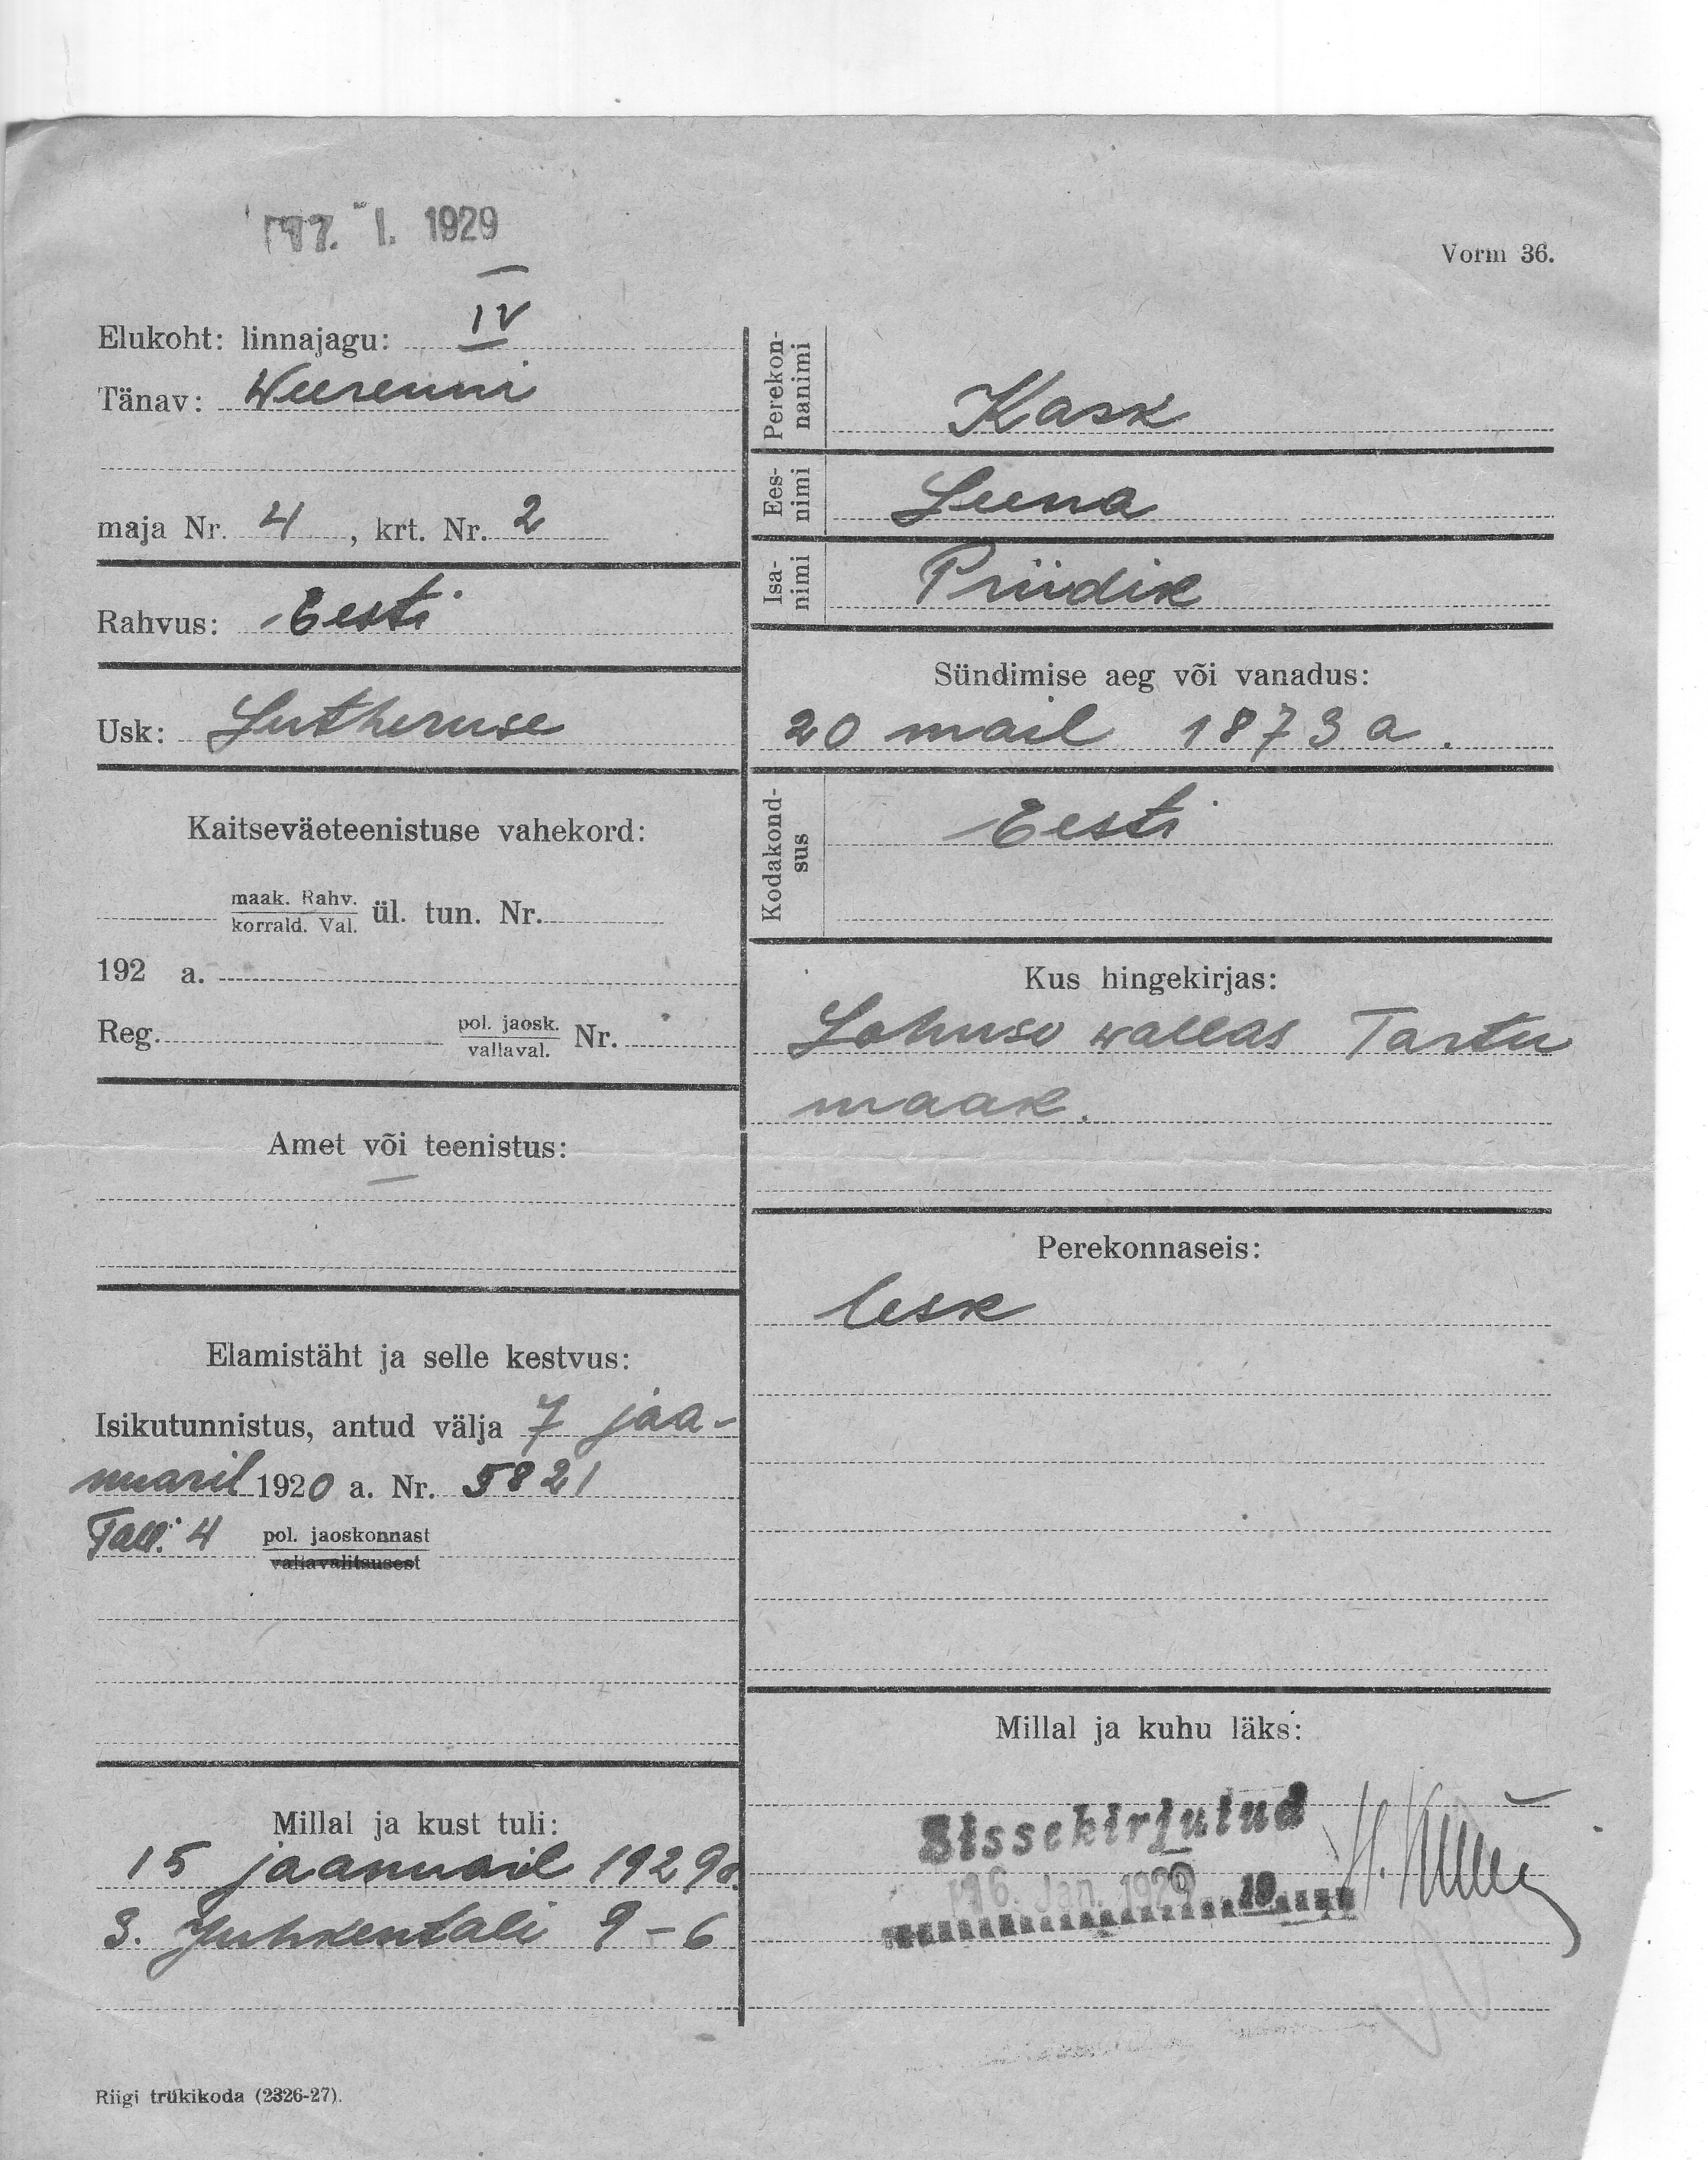 17. I. 1929
Vorm 36.
Elukoht: linnajagu: IV
Tänav: Weerenni
maja Nr. 4, krt. Nr. 2
Rahvus: Eesti
Usk: Lutheruse
Kaitseväeteenistuse vahekord:
maak. Rahv.
korrald. Val. ül. tun. Nr.
192 a.
Reg. pol. jaosk.
vallaval. Nr.
Amet või teenistus:
—
Elamistäht ja selle kestvus:
Isikutunnistus, antud välja 7 jaa-
nuaril 1920 a. Nr. 5821
Tall. 4 pol. jaoskonnast
vallavalitsusest
Millal ja kust tuli:
15 jaanuail 1929a.
3. Juhkentali 9-6
Perekon-
nanimi Kask
Ees-
nimi Leena
Isa-
nimi Priidik
Sündimise aeg või vanadus:
20 mail 1873 a.
Kodakond-
sus Eesti
Kus hingekirjas:
Lohuso wallas Tartu
maak.
Perekonnaseis:
lesk
Millal ja kuhu läks:
Sissekirjutud
16. Jan. 1929 19
Riigi trükikoda (2326-27).